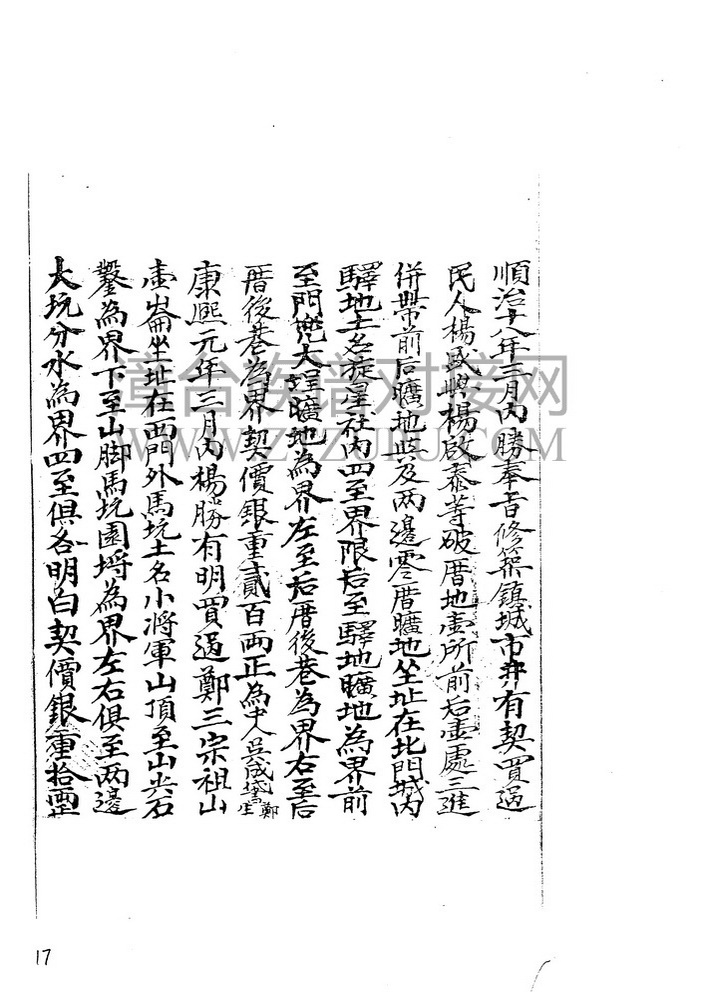 順治十八年三月內勝奉旨修築鎮城市井有契買過
民人楊盛興楊啟泰等破厝地壹所前后壹處三進
併帶前后曠地與及两邊零厝曠地坐址在北門城內
驛地土名旋屋社內四至界限后至驛地曠地為界前
至門兜大埕曠地為界左至后厝後巷為界右至后
厝後巷為界契價銀重貳百两正為中人吳成 鄭
康熙元年三月內楊勝有明買過鄭三宗祖山
壹崙坐址在西門外馬坑土名小將軍山頂至山尖石
鑿為界下至山脚馬坑園埒為界左右俱至两邊
大坑分水為界四至俱各明白契價銀重拾
章台族谱对接网
WWW.ZTZUPU.COM
17